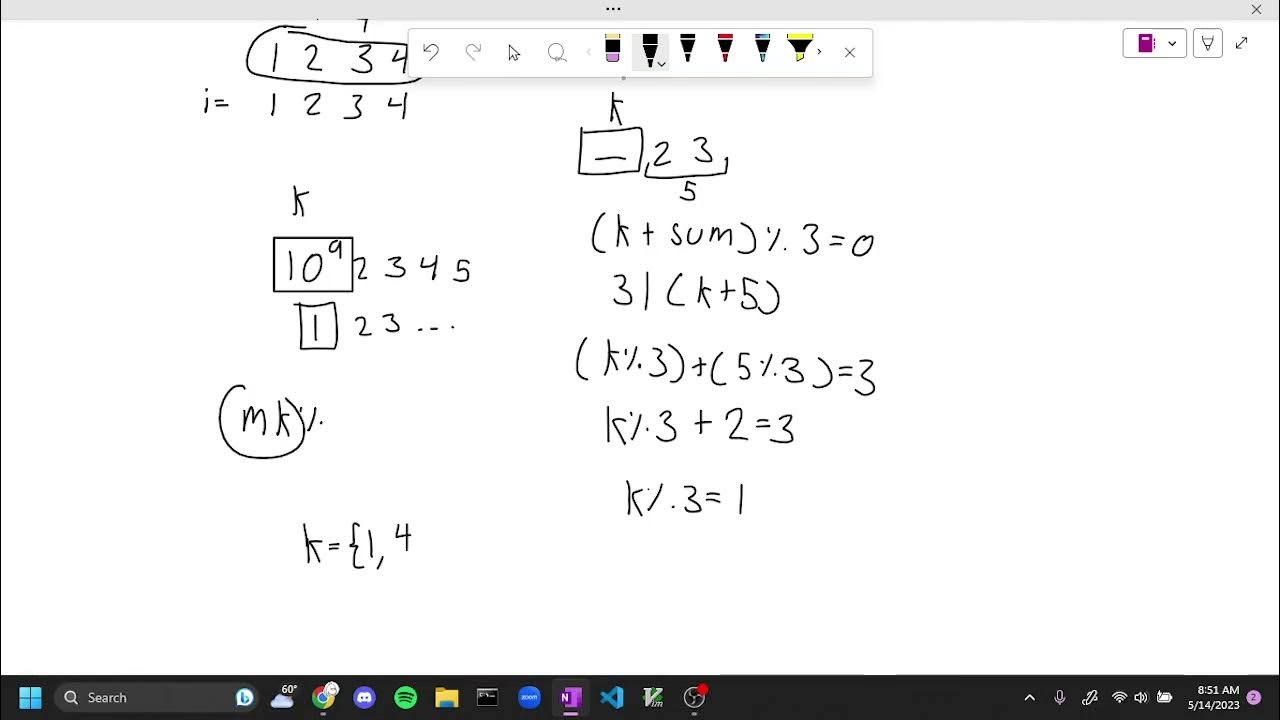 1 2 3 4
i= 1 2 3 4
k
10⁹ 2 3 4 5
1 2 3 ...
(mk)%
k={1, 4
k
_, 2 3,
5
(k + sum) % 3=0
3 | (k+5)
(k%3)+(5%3)=3
k%3 + 2=3
k%3=1
Search
60°
zoom
N
8:51 AM
5/14/2023
2